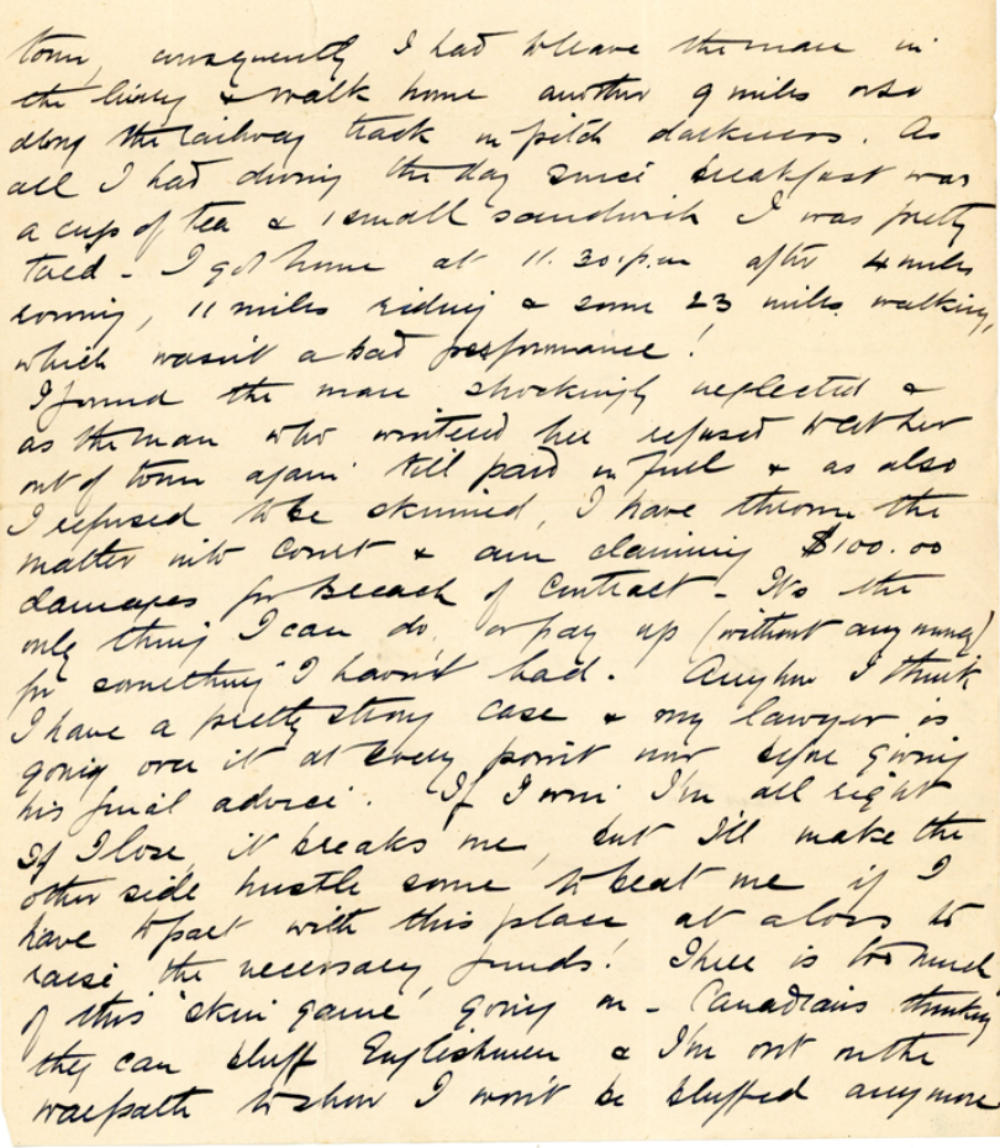 town, consequently I had to leave the mare in
the livery & walk home another 9 miles or so
along the railway track in pitch darkness. As
all I had during the day since breakfast was
a cup of tea & 1 small sandwich I was pretty
tired - I got home at 11.30.p.m after 4 miles
rowing, 11 miles riding & some 23 miles walking,
which wasn't a bad performance!
I found the mare shockingly neglected &
as the man who wintered her refused to let her
out of town again till paid in full & as also
I refused to be skinned, I have thrown the
matter into Court & am claiming $100.00
damages for Breach of Contract - Its the
only thing I can do, or pay up (without any money)
for something I havn't had. Anyhow I think
I have a pretty strong case & my lawyer is
going over it at every point now before giving
his final advice. If I win I'm all right
If I lose, it breaks me, but I'll make the
other side hustle some to beat me if I
have to part with this place at a loss to
raise the necessary funds! There is too much
of this 'skin game' going on - Canadians thinking
they can bluff Englishmen & I'm out on the
warpath to show I won't be bluffed anymore